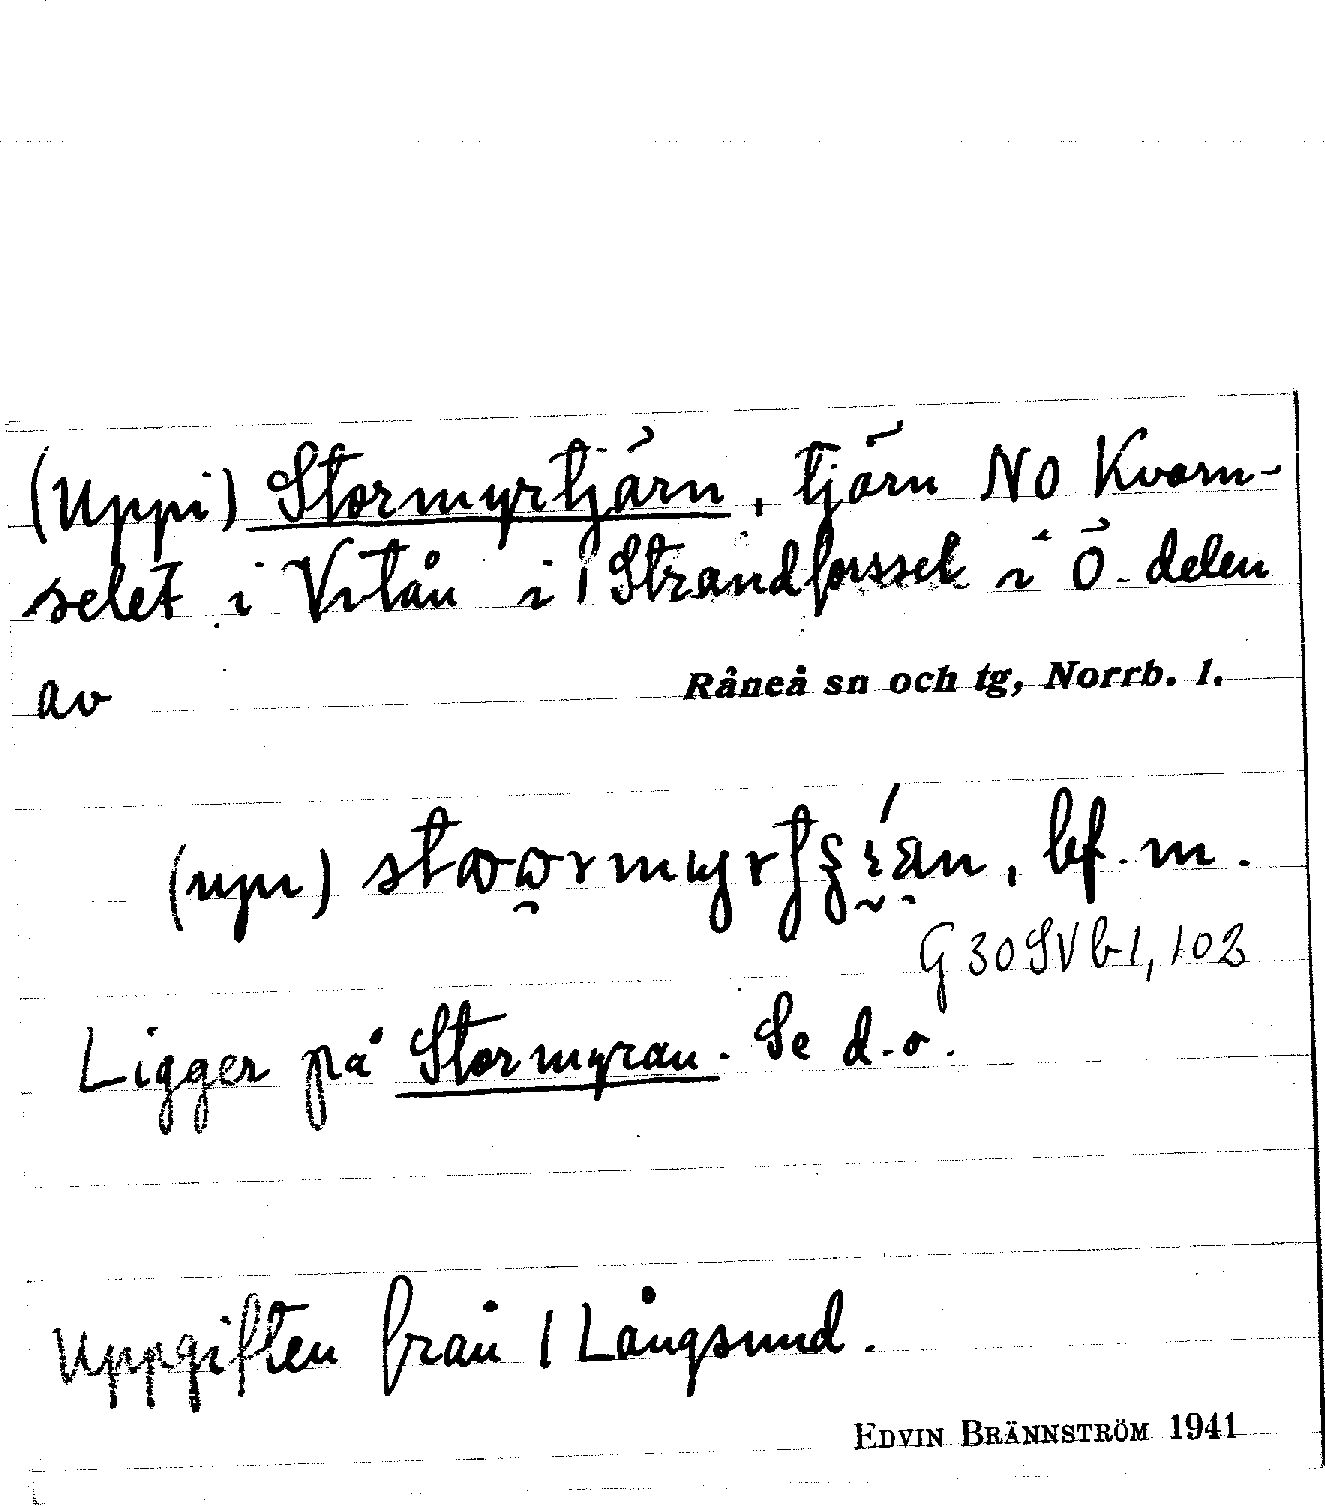 (Uppi) Stormyrtjärn, tjärn NO Kvarn-
selet i Vitån i 1 Strandforssel i Ö. delen
av Råneå sn och tg, Norrb. l.
(upi) , bf. m.
G 30 SV b 1, 102
Ligger på Stormyran. Se d.o.
Uppgiften från 1 Långsund.
EDVIN BRÄNNSTRÖM 1941